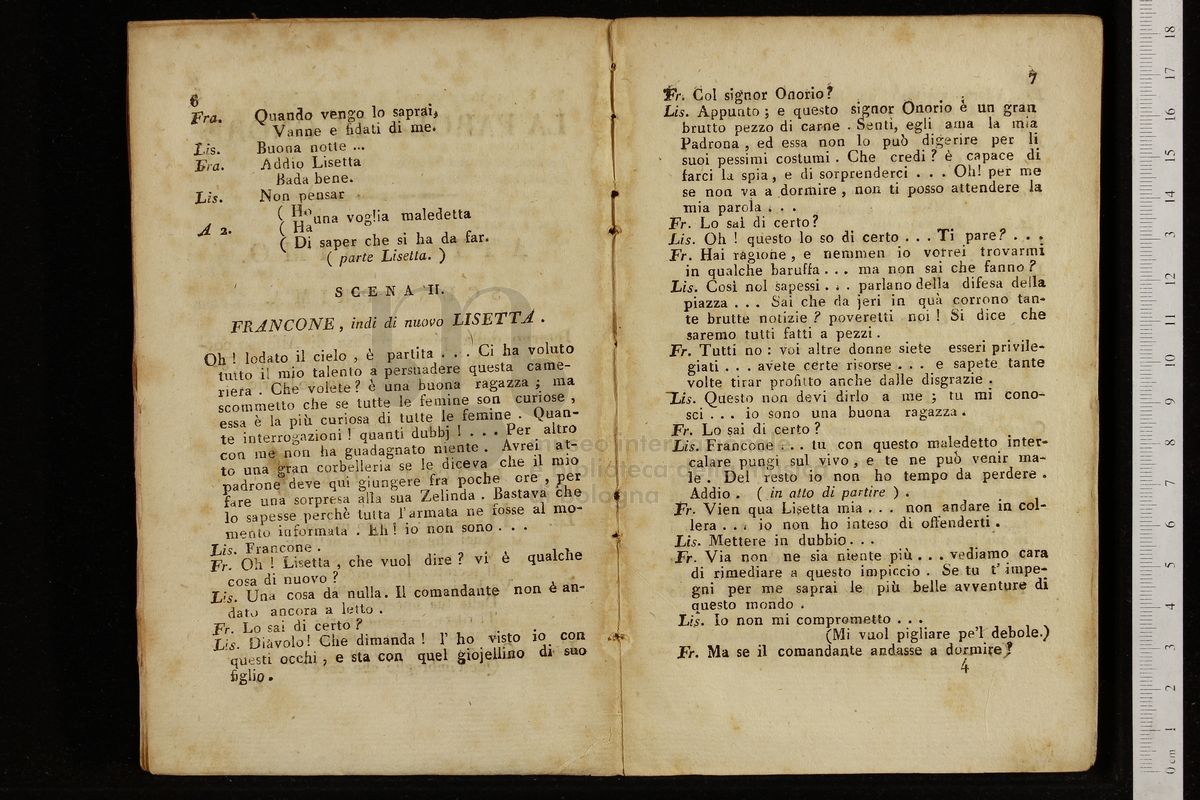 6
Fra. Quando vengo lo saprai,
Vanne e fidati di me.
Lis. Buona notte ...
Fra. Addio Lisetta
Bada bene.
Lis. Non pensar
A 2. ( Ho
( Ha una voglia maledetta
( Di saper che si ha da far.
( parte Lisetta. )
SCENA II.
FRANCONE , indi di nuovo LISETTA .
Oh ! lodato il cielo , è partita . . . Ci ha voluto
tutto il mio talento a persuadere questa came-
riera . Che volete ? è una buona ragazza ; ma
scommetto che se tutte le femine son curiose ,
essa è la più curiosa di tutte le femine . Quan-
te interrogazioni ! quanti dubbj ! . . . Per altro
con me non ha guadagnato niente . Avrei at-
to una gran corbelleria se le diceva che il mio
padrone deve qui giungere fra poche ore , per
fare una sorpresa alla sua Zelinda . Bastava che
lo sapesse perchè tutta l'armata ne fosse al mo-
mento informata . Eh ! io non sono . . .
Lis. Francone .
Fr. Oh ! Lisetta , che vuol dire ? vi è qualche
cosa di nuovo ?
Lis. Una cosa da nulla. Il comandante non è an-
dato ancora a letto .
Fr. Lo sai di certo ?
Lis. Diavolo ! Che dimanda ! l' ho visto io con
questi occhi , e sta con quel giojellino di suo
figlio .
7
Fr. Col signor Onorio ?
Lis. Appunto ; e questo signor Onorio è un gran
brutto pezzo di carne . Senti, egli ama la mia
Padrona , ed essa non lo può digerire per li
suoi pessimi costumi . Che credi ? è capace di
farci la spia , e di sorprenderci . . . Oh! per me
se non va a dormire , non ti posso attendere la
mia parola . . .
Fr. Lo sai di certo ?
Lis. Oh ! questo lo so di certo . . . Ti pare ? . . .
Fr. Hai ragione , e nemmen io vorrei trovarmi
in qualche baruffa . . . ma non sai che fanno ?
Lis. Così nol sapessi . . . parlano della difesa della
piazza . . . Sai che da jeri in quà corrono tan-
te brutte notizie ? poveretti noi ! Si dice che
saremo tutti fatti a pezzi .
Fr. Tutti no : voi altre donne siete esseri privile-
giati . . . avete certe risorse . . . e sapete tante
volte tirar profitto anche dalle disgrazie .
Lis. Questo non devi dirlo a me ; tu mi cono-
sci . . . io sono una buona ragazza .
Fr. Lo sai di certo ?
Lis. Francone . . . tu con questo maledetto inter-
calare pungi sul vivo , e te ne può venir ma-
le . Del resto io non ho tempo da perdere .
Addio . ( in atto di partire ) .
Fr. Vien qua Lisetta mia . . . non andare in col-
lera . . . io non ho inteso di offenderti .
Lis. Mettere in dubbio . . .
Fr. Via non ne sia niente più . . . vediamo cara
di rimediare a questo impiccio . Se tu t' impe-
gni per me saprai le più belle avventure di
questo mondo .
Lis. Io non mi comprometto . . .
(Mi vuol pigliare pe'l debole.)
Fr. Ma se il comandante andasse a dormire ?
4
museo internazionale
e biblioteca della musica
bologna